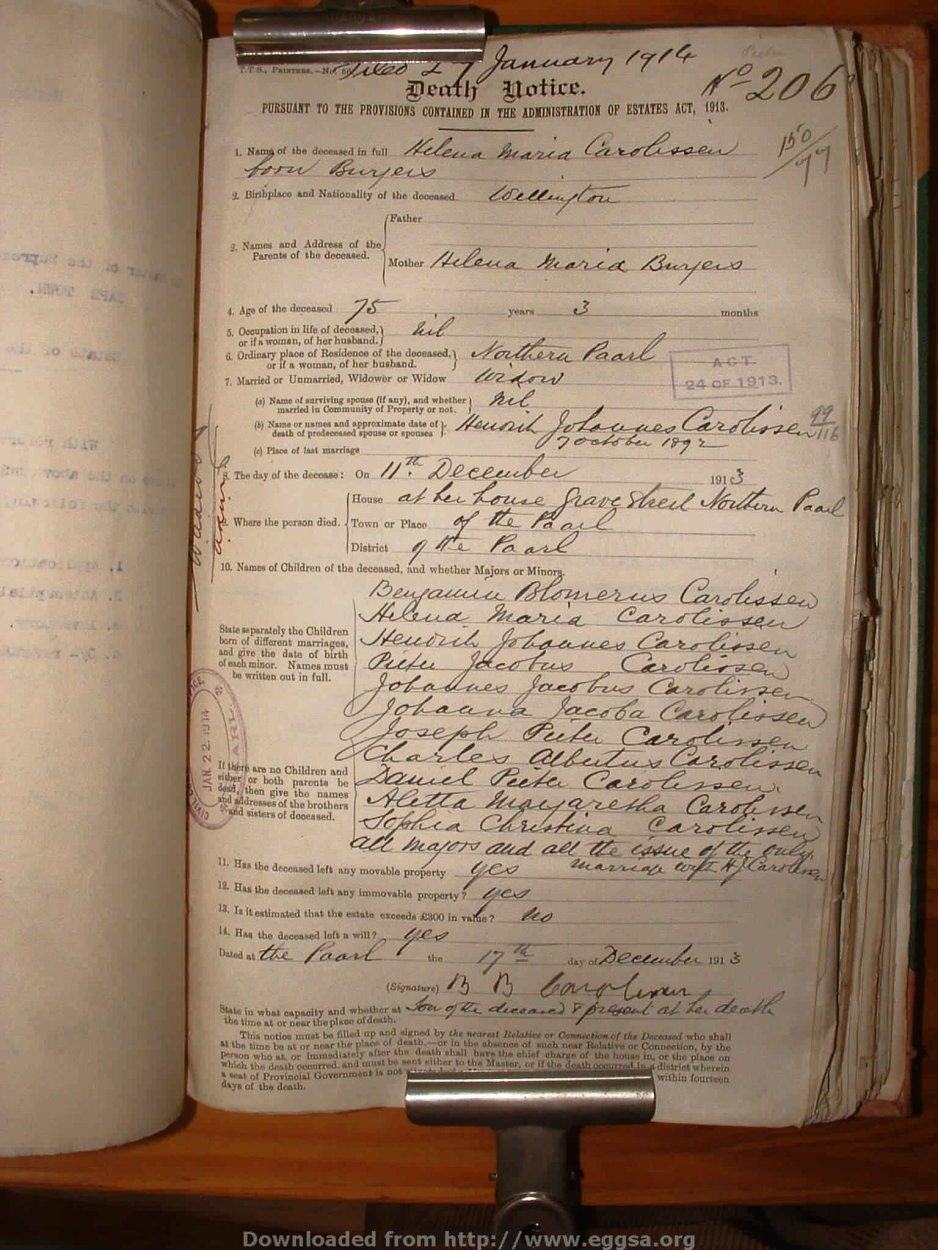 T.T.S., PRINTERS.—No. Filed 27 January 1914
No 206
Death Notice.
PURSUANT TO THE PROVISIONS CONTAINED IN THE ADMINISTRATION OF ESTATES ACT, 1913.
150/77
1. Name of the deceased in full Helena Maria Carolissen
born Burgers
2. Birthplace and Nationality of the deceased Wellington
Father
2. Names and Address of the
Parents of the deceased.
Mother Helena Maria Burgers
4. Age of the deceased 75 years 3 months
5. Occupation in life of deceased, or if a woman, of her husband. nil
6. Ordinary place of Residence of the deceased, or if a woman, of her husband. Northern Paarl
ACT.
24 OF 1913.
7. Married or Unmarried, Widower or Widow Widow
(a) Name of surviving spouse (if any), and whether married in Community of Property or not. Nil
(b) Name or names and approximate date of death of predeceased spouse or spouses Hendrik Johannes Carolissen
7 October 1892
99/116
(c) Place of last marriage
8. The day of the decease: On 11th December 1913
House at her house Grave Street Northern Paarl
9. Where the person died. Town or Place of the Paarl
District of the Paarl
10. Names of Children of the deceased, and whether Majors or Minors.
Benjamin Blomerus Carolissen
Helena Maria Carolissen
Hendrik Johannes Carolissen
Pieter Jacobus Carolissen
Johannes Jacobus Carolissen
Johanna Jacoba Carolissen
Joseph Pieter Carolissen
Charles Albertus Carolissen
Daniel Pieter Carolissen
Aletta Margaretha Carolissen
Sophia Christina Carolissen
all majors and all the issue of the only
marriage with HJ Carolissen
State separately the Children
born of different marriages,
and give the date of birth
of each minor. Names must
be written out in full.
JAN 22 1914
If there are no Children and
either or both parents be
dead, then give the names
and addresses of the brothers
and sisters of deceased.
11. Has the deceased left any movable property yes
12. Has the deceased left any immovable property? yes
13. Is it estimated that the estate exceeds £300 in value? no
14. Has the deceased left a will? yes
Dated at the Paarl the 17th day of December 1913
(Signature) B B Carolissen
State in what capacity and whether at Son of the deceased & present at her death
the time at or near the place of death.
This notice must be filled up and signed by the nearest Relative or Connection of the Deceased who shall
at the time be at or near the place of death,—or in the absence of such near Relative or Connection, by the
person who at, or immediately after the death shall have the chief charge of the house in, or the place on
which the death occurred, and must be sent either to the Master, or if the death occurred in a district wherein
a seat of Provincial Government is not within fourteen
days of the death.
Downloaded from http://www.eggsa.org